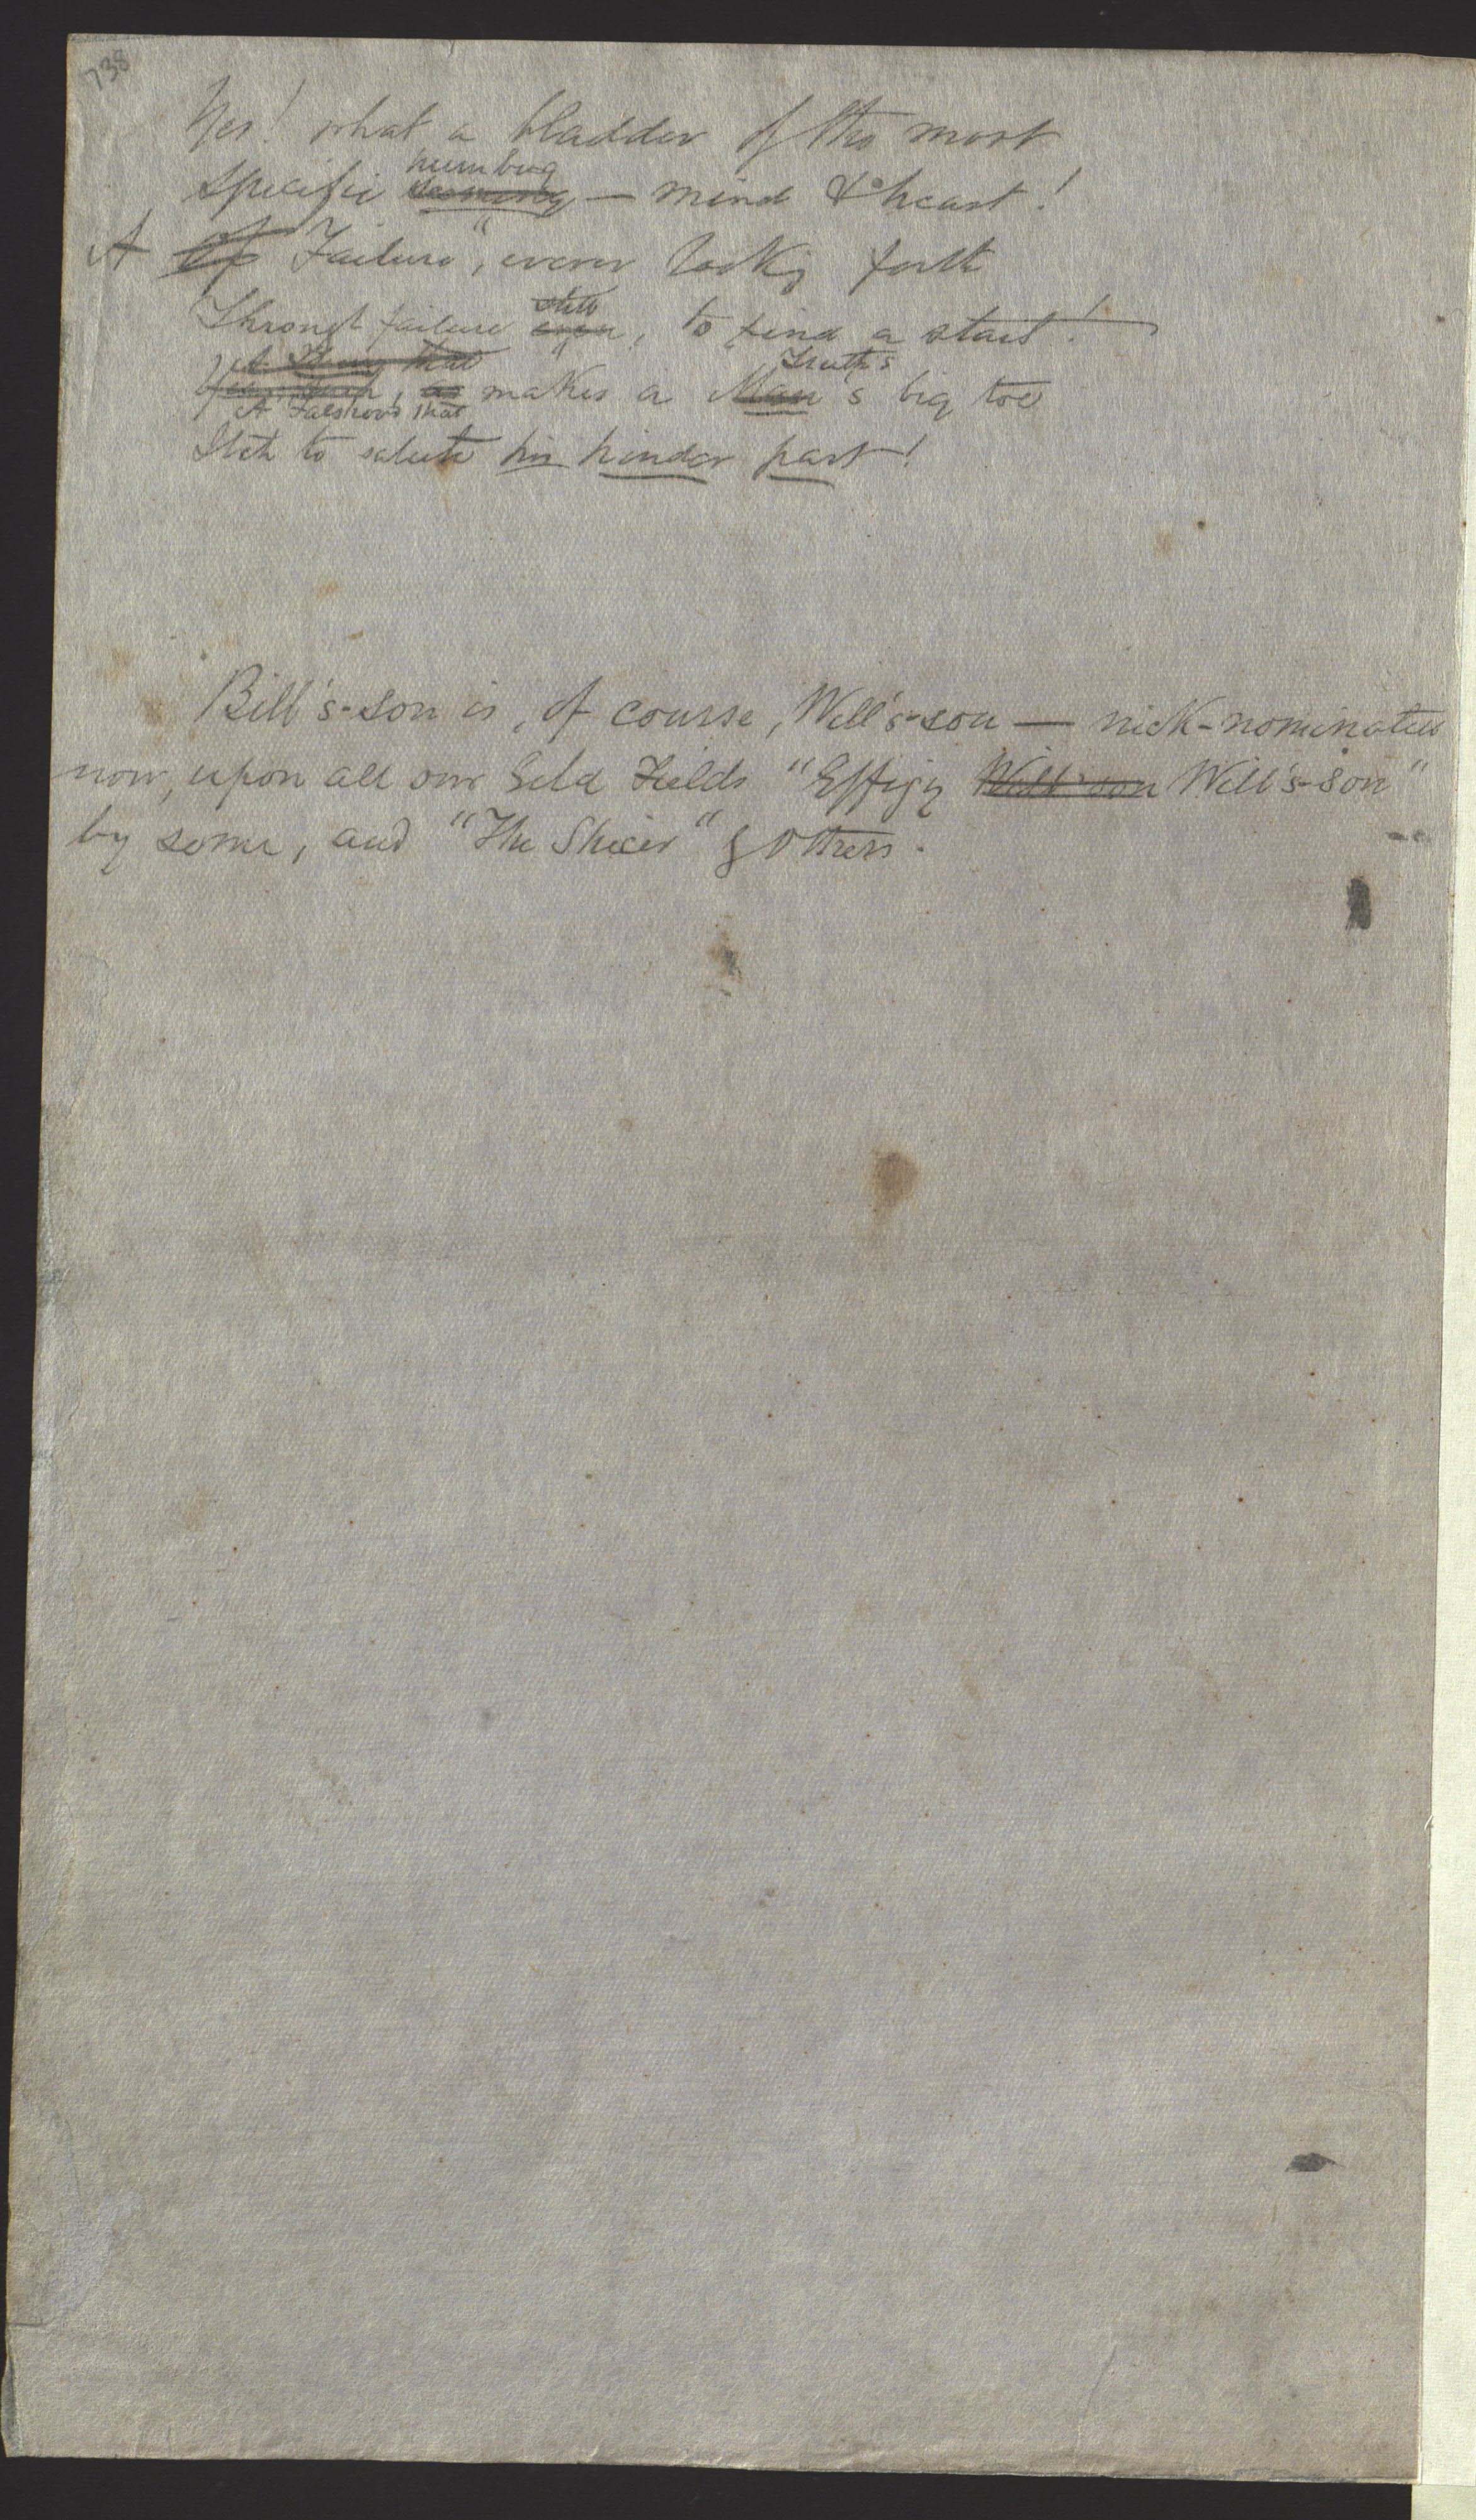 738
Yes! what a bladder of the most
humbug
specific seeming — mind & heart!
A Of "Failure", ever looking forth
still
Through failure, to find a start!
A Thing that
Truth's
as makes a Man's big toe
A Falshood that
Itch to salute his hinder part!
Bill's-son is, of course, Will's-son — nick-nominated
now, upon all our Gold Fields "Effigy Will's-son Will's-son"
by some, and "The Shicer" by others.